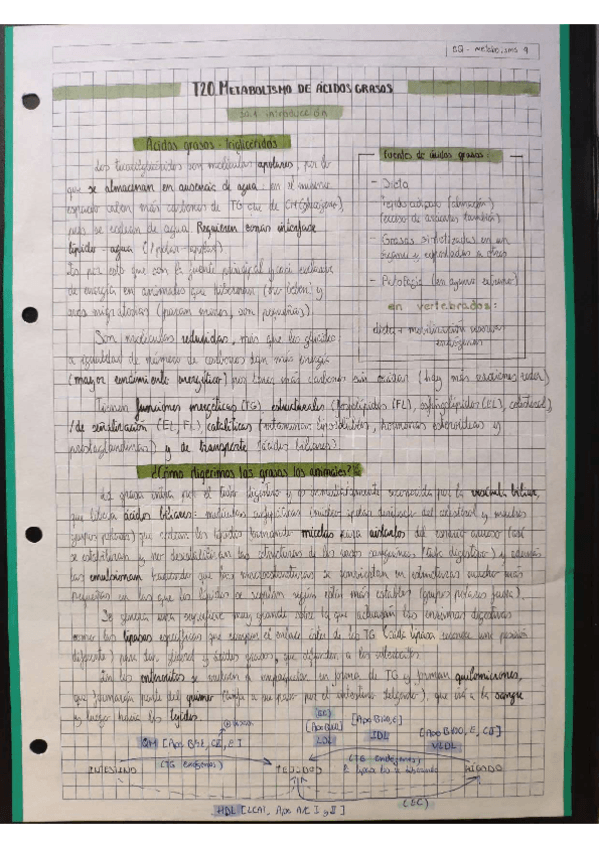 BQ - Metabolismo 9
T20. METABOLISMO DE ÁCIDOS GRASOS
20.1. introducción
Ácidos grasos - triglicéridos
Los triacilglicéridos son moléculas apolares, por lo
que se almacenan en ausencia de agua: en el mismo
espacio caben más carbonos de TG que de Cn (glucógeno),
pues se rodean de agua. Requieren zonas interfase
lípido - agua (
Es por esto que son la fuente principal y casi exclusiva
de energía en animales que hibernan (no beben) y
aves migratorias (pesan menos, son pequeñas).
Son moléculas reducidas, más que los glúcidos:
a igualdad de número de carbonos dan más energía
(mayor rendimiento energético) por tener más carbonos sin oxidar (hay más reacciones redox)
Tienen funciones energéticas (TG) estructurales (fosfolípidos (FL), esfingolípidos (EL), colesterol)
/de señalización (EL, FL) catalíticas (vitaminas liposolubles, hormonas esteroideas y
prostaglandinas) y de transporte (ácidos biliares).
Fuentes de ácidos grasos:
- Dieta
- Tejido adiposo (almacén)
(exceso de azúcares también)
- Grasas sintetizadas en un
órgano y exportadas a otros
- Autofagia (en ayuno extremo)
en vertebrados:
dieta + movilización reservas
endógenas
¿Cómo digerimos las grasas los animales?
La grasa entra por el tubo digestivo y es inmediatamente reconocida por la vesícula biliar,
que libera ácidos biliares: moléculas anfipáticas (núcleo apolar derivado del colesterol y muchos
grupos polares) que rodean los lípidos formando micelas para aislarlos del medio acuoso (así
se estabilizan y no desestabilizan las estructuras de los vasos sanguíneos (tubo digestivo) y además
las emulsionan haciendo que las macroestructuras se conviertan en estructuras mucho más
pequeñas en las que los lípidos se regulan según estén más estables (grupos polares fuera).
Se genera una superficie muy grande sobre la que actuarán las enzimas digestivas
como las lipasas específicas que rompen el enlace éster de los TG (cada lipasa reconoce una posición
diferente) para dar glicerol y ácidos grasos, que difunden a los enterocitos.
En los enterocitos se vuelven a empaquetar en forma de TG y forman quilomicrones,
que formarán parte del quimo (linfa a su paso por el intestino delgado), que irá a la sangre
y luego hacia los tejidos.
QM [Apo B48, CII, E]
(CE)
[Apo B100]
LDL
[Apo B100, E]
IDL
[Apo B100, E, CII]
VLDL
INTESTINO
(TG exógenos)
TEJIDO
(TG endógenos)
HÍGADO
HDL [LCAT, Apo A/E I y II]
(CE)